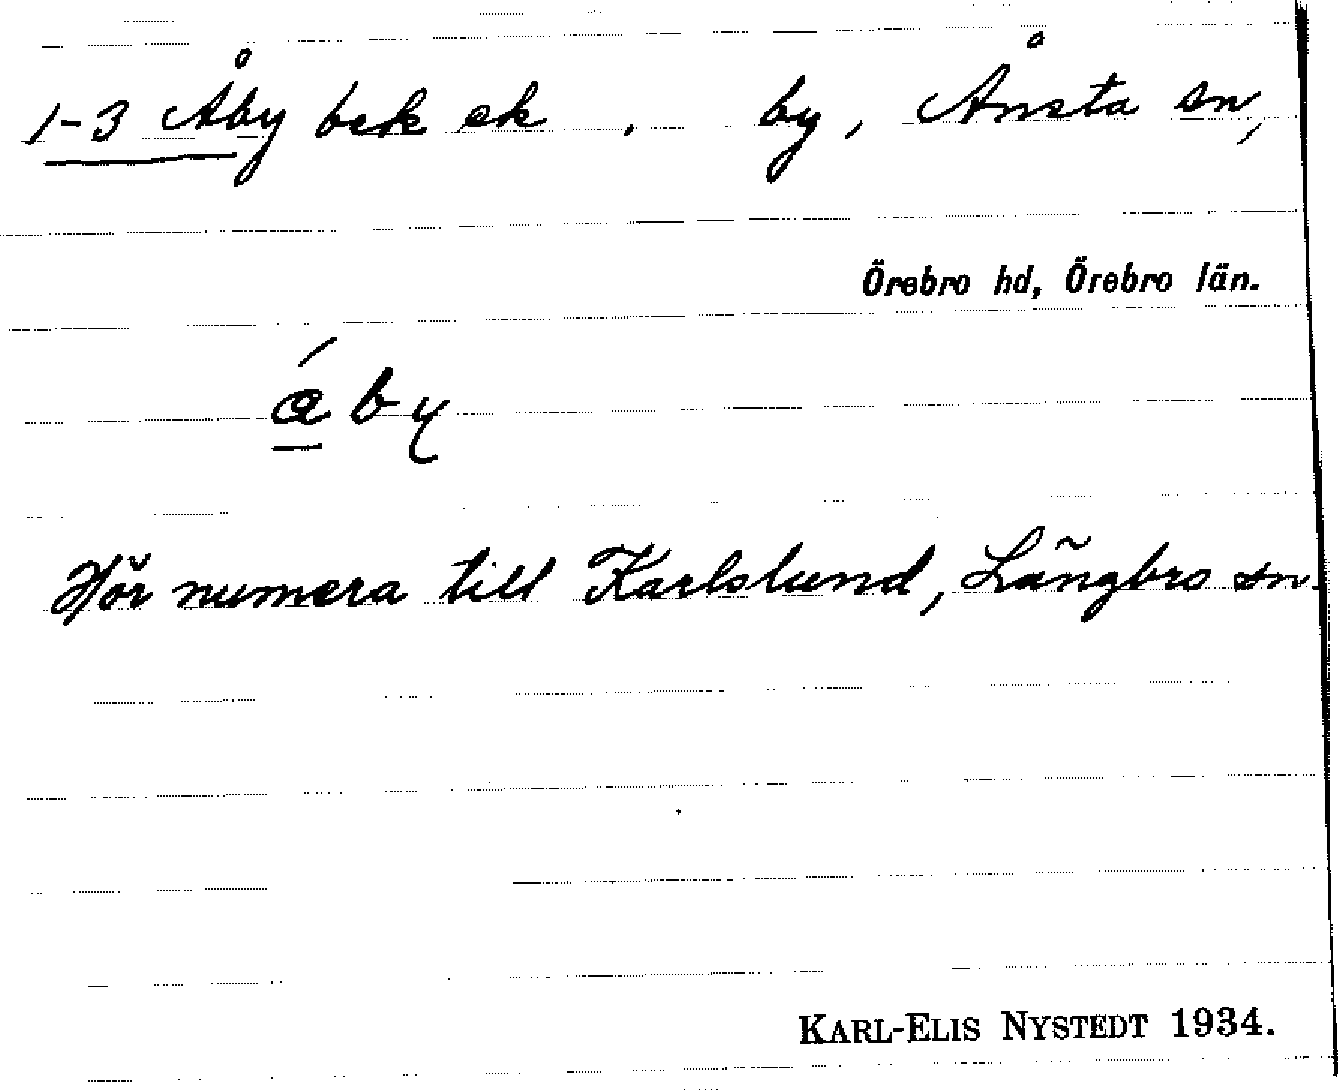 1-3 Åby bek ek . by, Ånsta sn,
Örebro hd, Örebro län.
áby
Hör numera till Karlslund, Långbro sn.
KARL-ELIS NYSTEDT 1934.